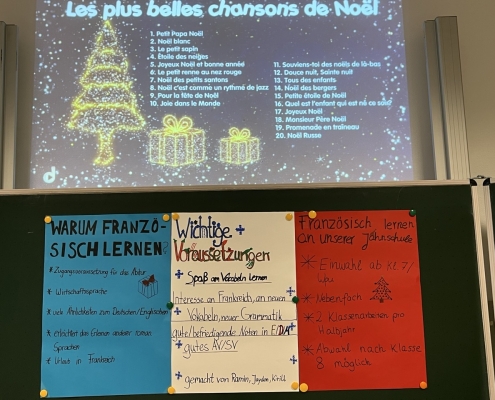 Les plus belles chansons de Noël
1. Petit Papa Noël
2. Noël blanc
3. Le petit sapin
4. Étoile des neiges
5. Joyeux Noël et bonne année
6. Le petit renne au nez rouge
7. Noël des petits santons
8. Noël c'est comme un rythme de jazz
9. Pour la fête de Noël
10. Joie dans le Monde
11. Souviens-toi des noëls de là-bas
12. Douce nuit, Sainte nuit
13. Tous des enfants
14. Noël des bergers
15. Petite étoile de Noël
16. Quel est l'enfant qui est né ce soir
17. Joyeux Noël
18. Monsieur Père Noël
19. Promenade en traîneau
20. Noël Russe
WARUM FRANZÖ-
SISCH LERNEN
* Zugangsvoraussetzung für das Abitur
* Wirtschaftssprache
* viele Ähnlichkeiten zum Deutschen/Englischen
* erleichtert das Erlernen anderer roman.
Sprachen
* Urlaub in Frankreich
Wichtige
Voraussetzungen
+ Spaß am Vokabeln lernen
Interesse an Frankreich, an neuen
Vokabeln, neuer Grammatik
gute/befriedigende Noten in E/DA
+ gutes AV/SV
+ gemacht von Ramin, Jayden, Kirill
Französisch lernen
an unserer Jahnschule
* Einwahl ab Kl. 7/
WPU
* Nebenfach
* 2 Klassenarbeiten pro
Halbjahr
* Abwahl nach Klasse
8 möglich